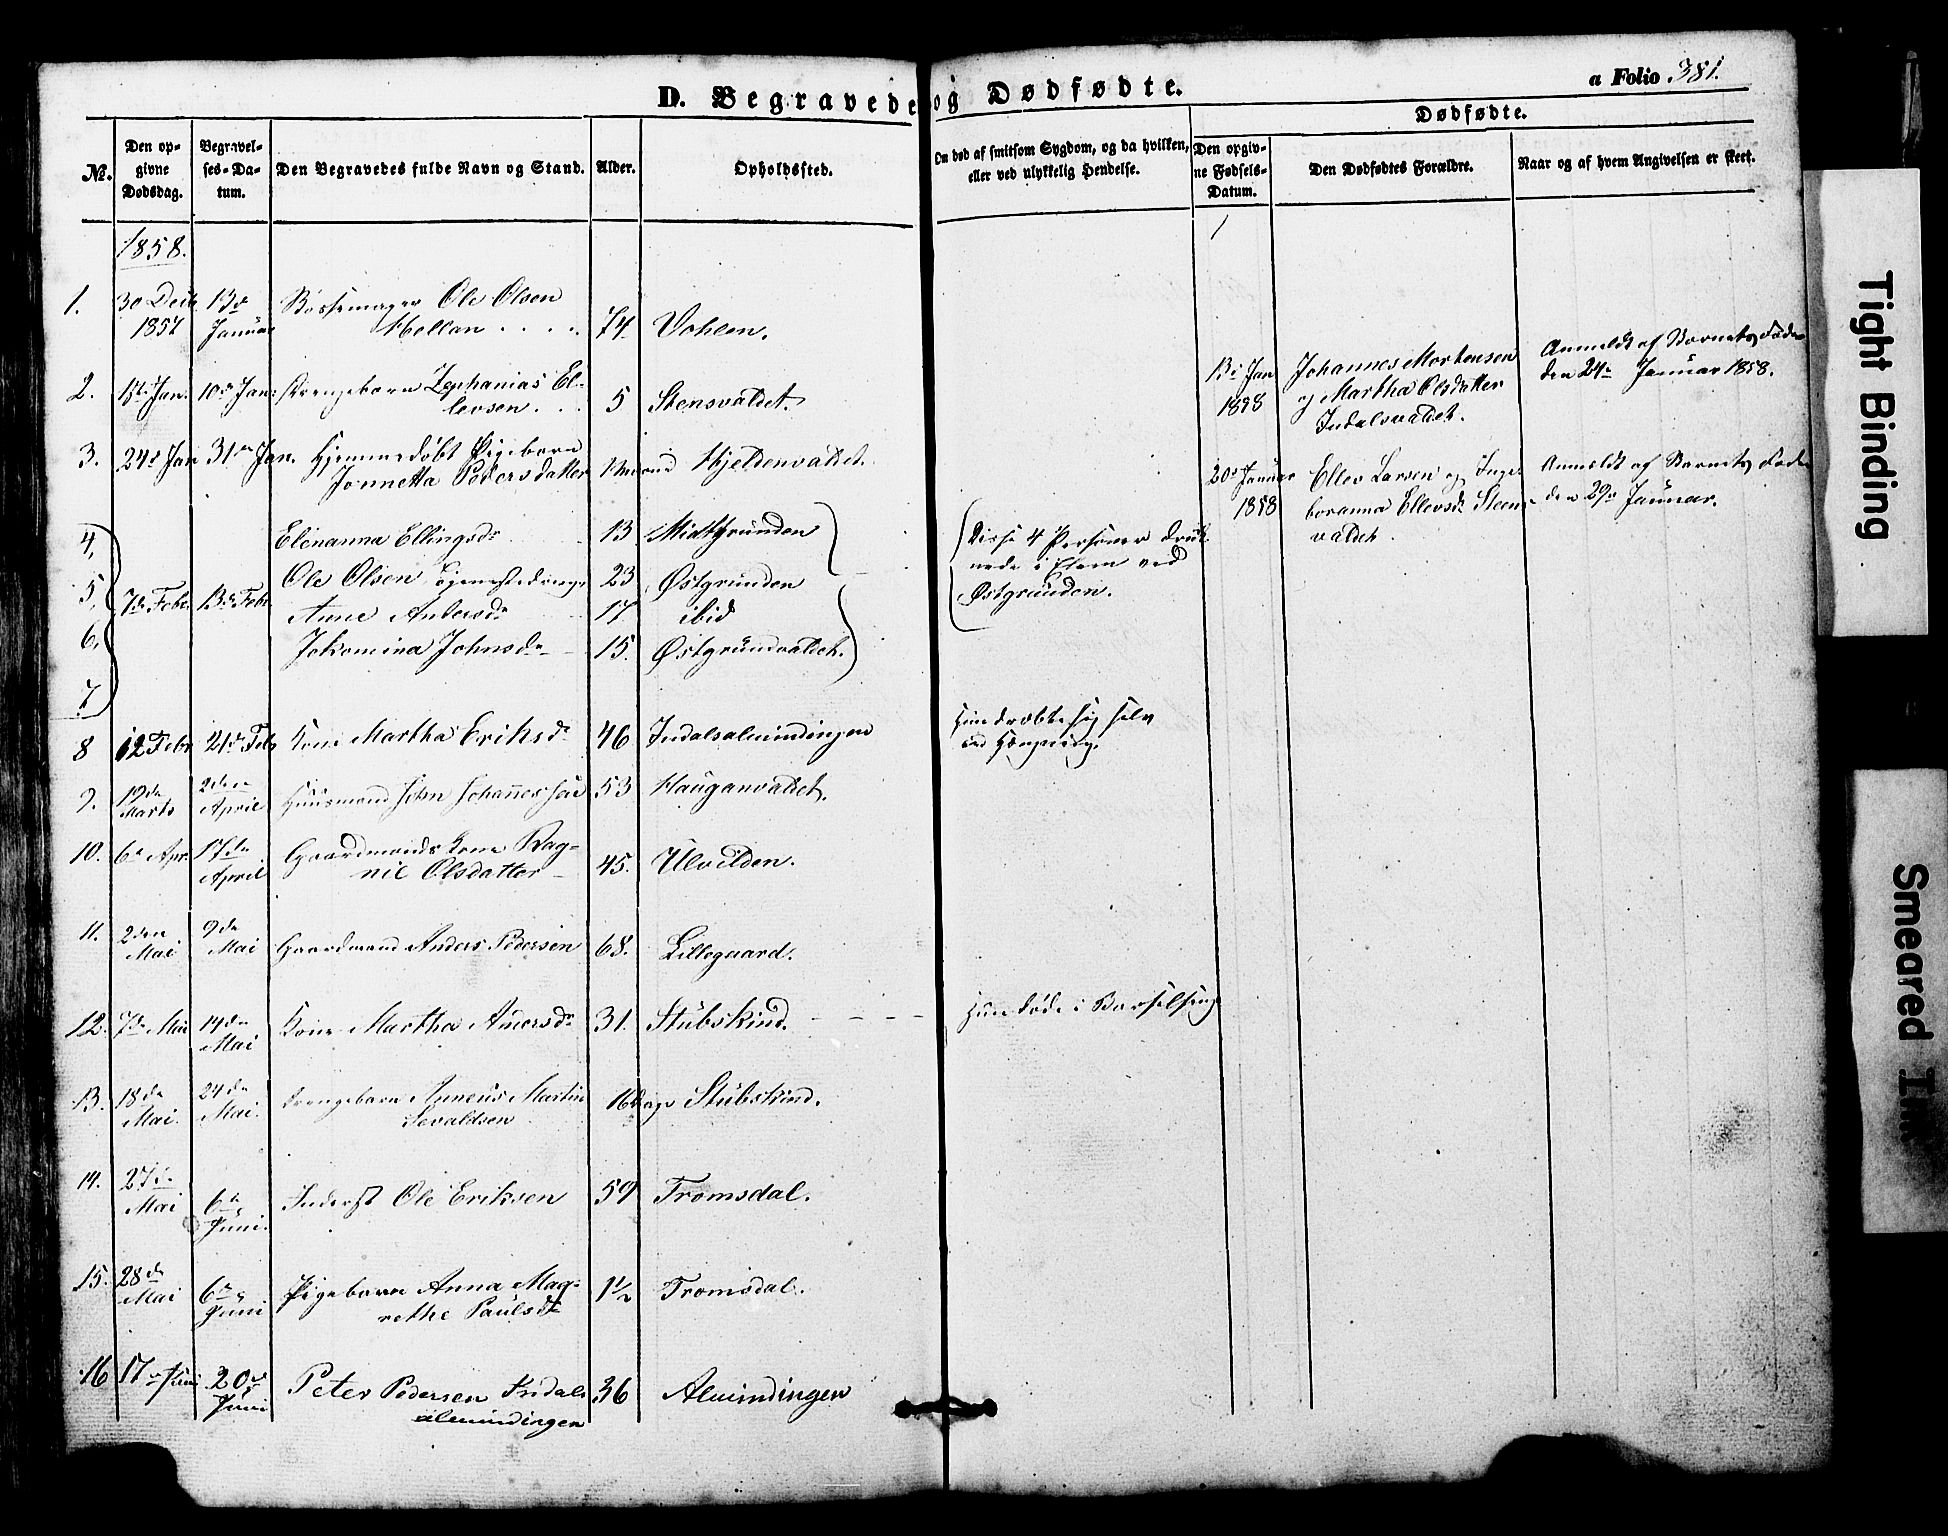 a Folio 381.
D. Begravede og Dødfødte.
Dødfødte.
No.
Den opgivne Dødsdag.
Begravelses-Datum.
Den Begravedes fulde Navn og Stand.
Alder.
Opholdssted.
Om død af smitsom Sygdom, og da hvilken, eller ved ulykkelig Hendelse.
Den opgivne Fødsels-Datum.
Den Dødfødtes Forældre.
Naar og af hvem Angivelsen er skeet.
1858.
1. 30 Decb 1857 13de Januar Bøssemager Ole Olsen
Hellan . . . . 74 Vohlen.
2. 10de Jan. Drengebarn Zephanias El-
levsen . . . 5 Stensvaldet.
3. 24de Jan 31te Jan. Hjemmedøbt Pigebarn
Jonnetta Pedersdatter Hjeldenvaldet.
4, Elenanna Ellingsdr 13 Midtgrunden
5, 7de Febr. 13de Febr. Ole Olsen Tjenestedreng 23 Østgrunden
6. Anne Andersdr 17 ibid
7 Jokomina Johnsdr 15. Østgrundvaldet.
Disse 4 Personer druk-
nede i Elven ved
Østgrunden.
8 12 Febr 21de Febr Kone Martha Eriksdr 46 Indalsalmindingen
Hun dræbte sig selv
ved Hængning.
9. 19de Marts 2den April Huusmand John Johannessen 53 Hauganvaldet.
10. 6te Apr. 17de April Gaardmands Kone Rag-
nil Olsdatter 45. Ulvilden.
11. 2den Mai 9de Mai Gaardmand Anders Pedersen 68. Lillegaard.
12. 7de Mai 14de Mai Kone Martha Andersdr 31. Stubskind. - - - - Hun døde i Barselseng
13. 18de Mai. 24de Mai. Drengebarn Anneus Martin
Sevaldsen 16 Dage Stubskind.
14. 27de Mai 6te Juni. Inderst Ole Eriksen 59 Tromsdal.
15. 28de Mai 6te Juni Pigebarn Anna Mag-
rethe Paulsdr 1½ Tromsdal.
16 17de Juni 20de Juni Peter Pedersen Indals
almindingen 36 Almindingen
13de Jan 1858 Johannes Mortensen
og Martha Olsdatter
Indalsvaldet.
Anmeldt af Barnets Fader
den 24de Januar 1858.
20de Januar 1858 Ellev Larsen og Inge-
boranna Ellevsdr Steens-
valdet.
Anmeldt af Barnets Fader
den 29de Januar.
Tight Binding
Smeared Ink